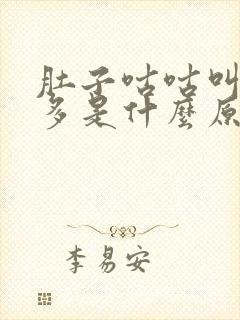 肚子咕咕叫
多是什麼原
李易安